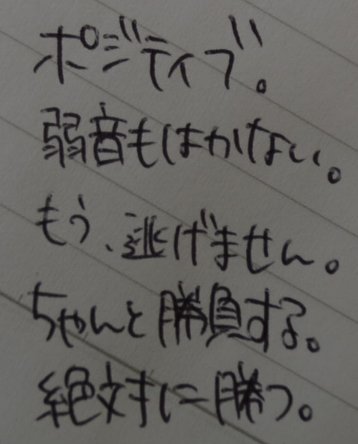 ポジティブ。
弱音もはかない。
もう、逃げません。
ちゃんと勝負する。
絶対に勝つ。